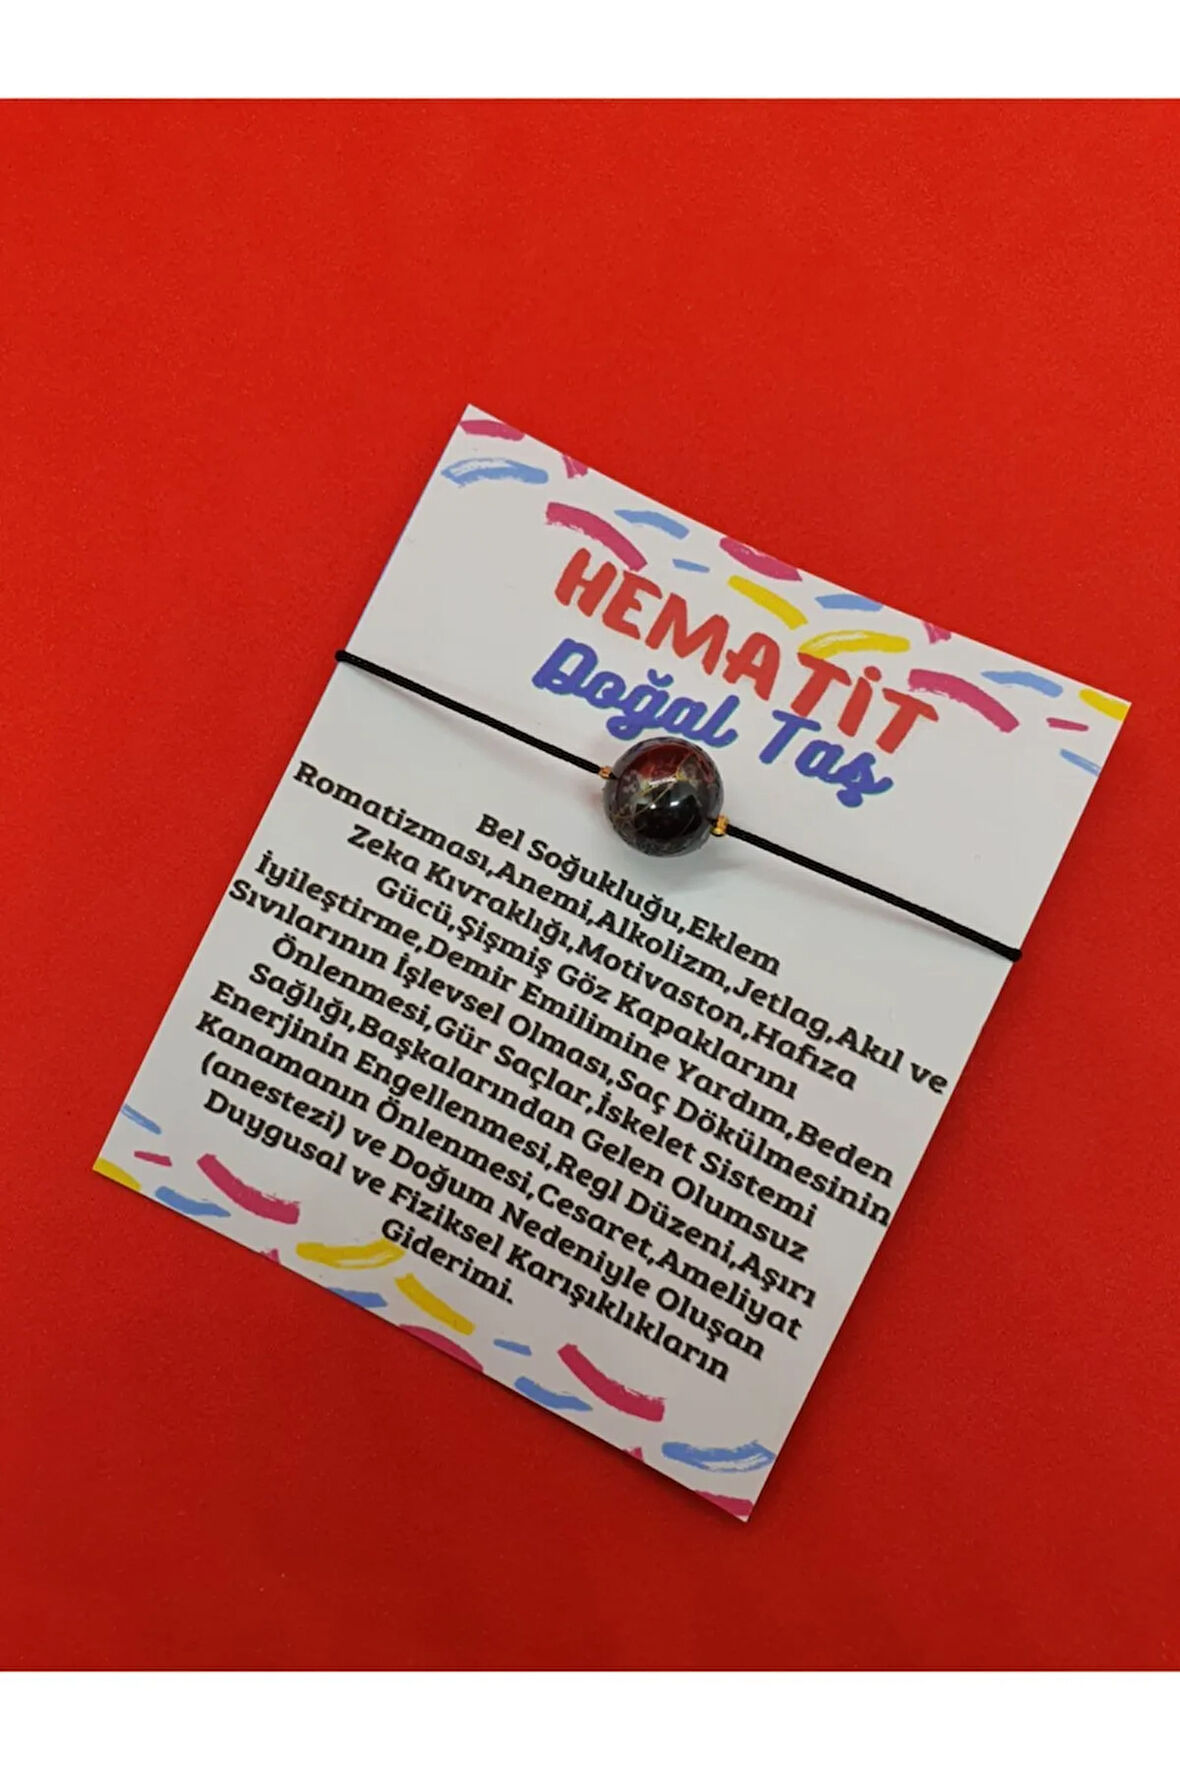 HEMATİT
Doğal Taş
Bel Soğukluğu,Eklem
Romatizması,Anemi,Alkolizm,Jetlag,Akıl ve
Zeka Kıvraklığı,Motivaston,Hafıza
Gücü,Şişmiş Göz Kapaklarını
İyileştirme,Demir Emilimine Yardım,Beden
Sıvılarının İşlevsel Olması,Saç Dökülmesinin
Önlenmesi,Gür Saçlar,İskelet Sistemi
Sağlığı,Başkalarından Gelen Olumsuz
Enerjinin Engellenmesi,Regl Düzeni,Aşırı
Kanamanın Önlenmesi,Cesaret,Ameliyat
(anestezi) ve Doğum Nedeniyle Oluşan
Duygusal ve Fiziksel Karışıklıkların
Giderimi.